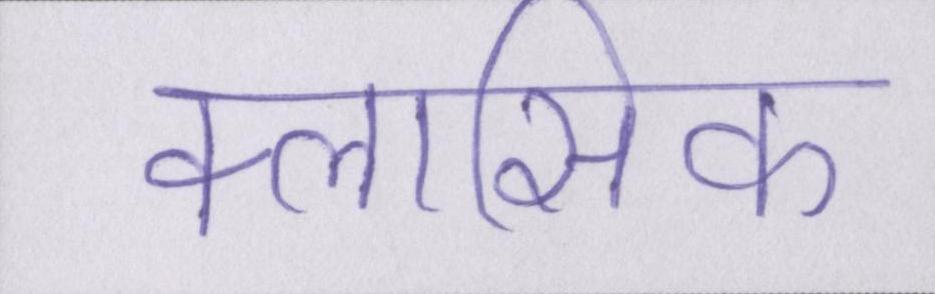 क्लासिक